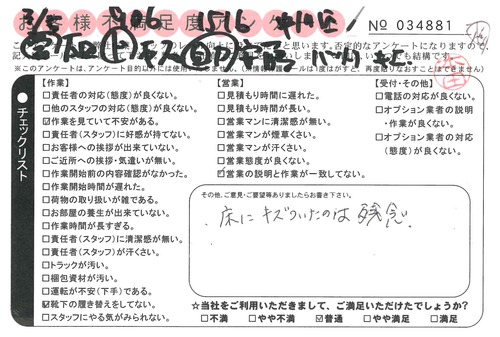 お客様不満足度アンケート
№ 034881
チェックリスト
【作業】
□責任者の対応(態度)が良くない。
□他のスタッフの対応(態度)が良くない。
☑作業を見ていて不安がある。
□責任者(スタッフ)に好感が持てない。
□お客様への挨拶が出来ていない。
□ご近所への挨拶・気遣いが無い。
□作業開始前の内容確認がなかった。
□作業開始時間が遅れた。
□荷物の取り扱いが雑である。
□お部屋の養生が出来ていない。
□作業時間が長すぎる。
□責任者(スタッフ)に清潔感が無い。
□責任者(スタッフ)が汗くさい。
□トラックが汚い。
□梱包資材が汚い。
□運転が不安(下手)である。
☑靴下の履き替えをしてない。
□スタッフにやる気がみられない。
【営業】
□見積もり時間に遅れた。
□見積もり時間が長い。
□営業マンに清潔感が無い。
□営業マンが煙草くさい。
□営業マンが汗くさい。
□営業態度が良くない。
☑営業の説明と作業が一致してない。
【受付・その他】
□電話の対応が良くない。
□オプション業者の説明
・作業が良くない。
□オプション業者の対応
(態度)が良くない。
その他、ご意見・ご要望等ありましたらお書き下さい。
床にキズついたのは残念。
☆当社をご利用いただきまして、ご満足いただけたでしょうか?
□不満 □やや不満 ☑普通 □やや満足 □満足